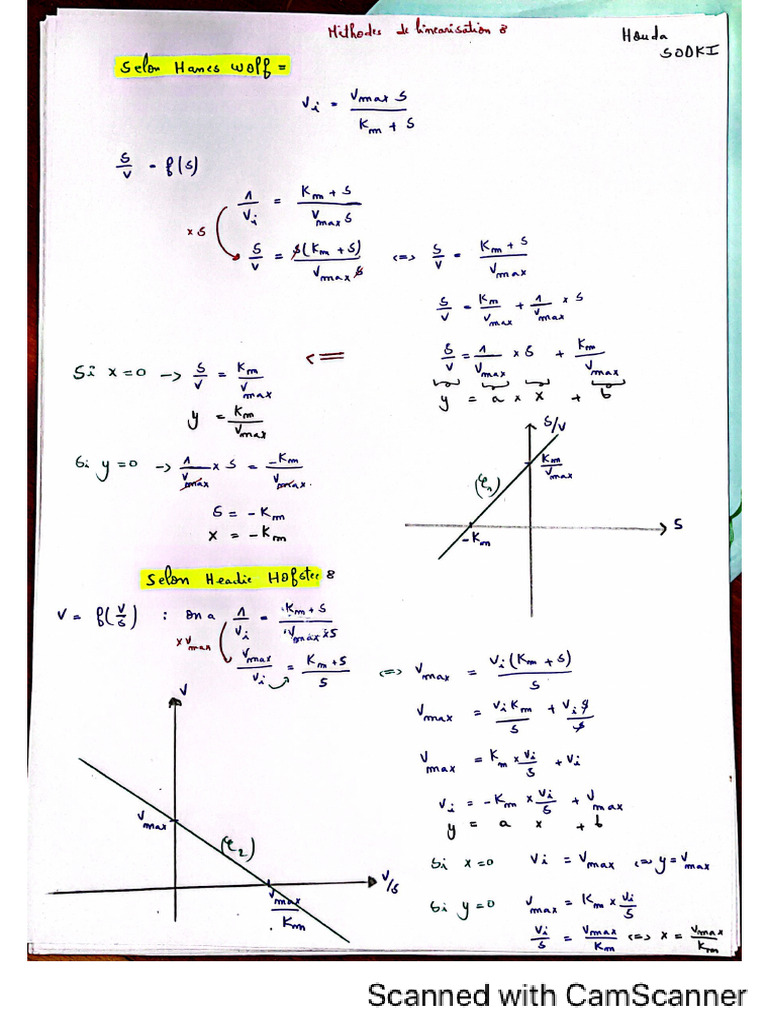 Méthodes de linéarisation :
Houda
SODKI
Selon Hanes Wolf =
Vi = Vmax S / (Km + S)
S/V = f(S)
1/Vi = (Km + S) / (Vmax S)
x S
S/V = S(Km + S) / (Vmax S) <=> S/V = (Km + S) / Vmax
S/V = Km/Vmax + 1/Vmax x S
S/V = 1/Vmax x S + Km/Vmax
y = a x X + b
<==
Si x=0 -> S/V = Km/Vmax
y = Km/Vmax
Si y=0 -> 1/Vmax x S = -Km/Vmax.
S = -Km
x = -Km
S/V
Km/Vmax
(C1)
S
-Km
Selon Headie Hofstee :
V = f(V/S) : on a 1/Vi = (Km + S) / (Vmax x S)
x Vmax
Vmax/Vi = (Km + S) / S <=> Vmax = Vi(Km + S) / S
Vmax = Vi Km / S + Vi S / S
Vmax = Km x Vi/S + Vi
Vi = -Km x Vi/S + Vmax
y = a x + b
Si x=0 Vi = Vmax <=> y = Vmax
Si y=0 Vmax = Km x Vi/S
Vi/S = Vmax/Km <=> x = Vmax/Km
V
Vmax
(C2)
V/S
Vmax/Km
Scanned with CamScanner